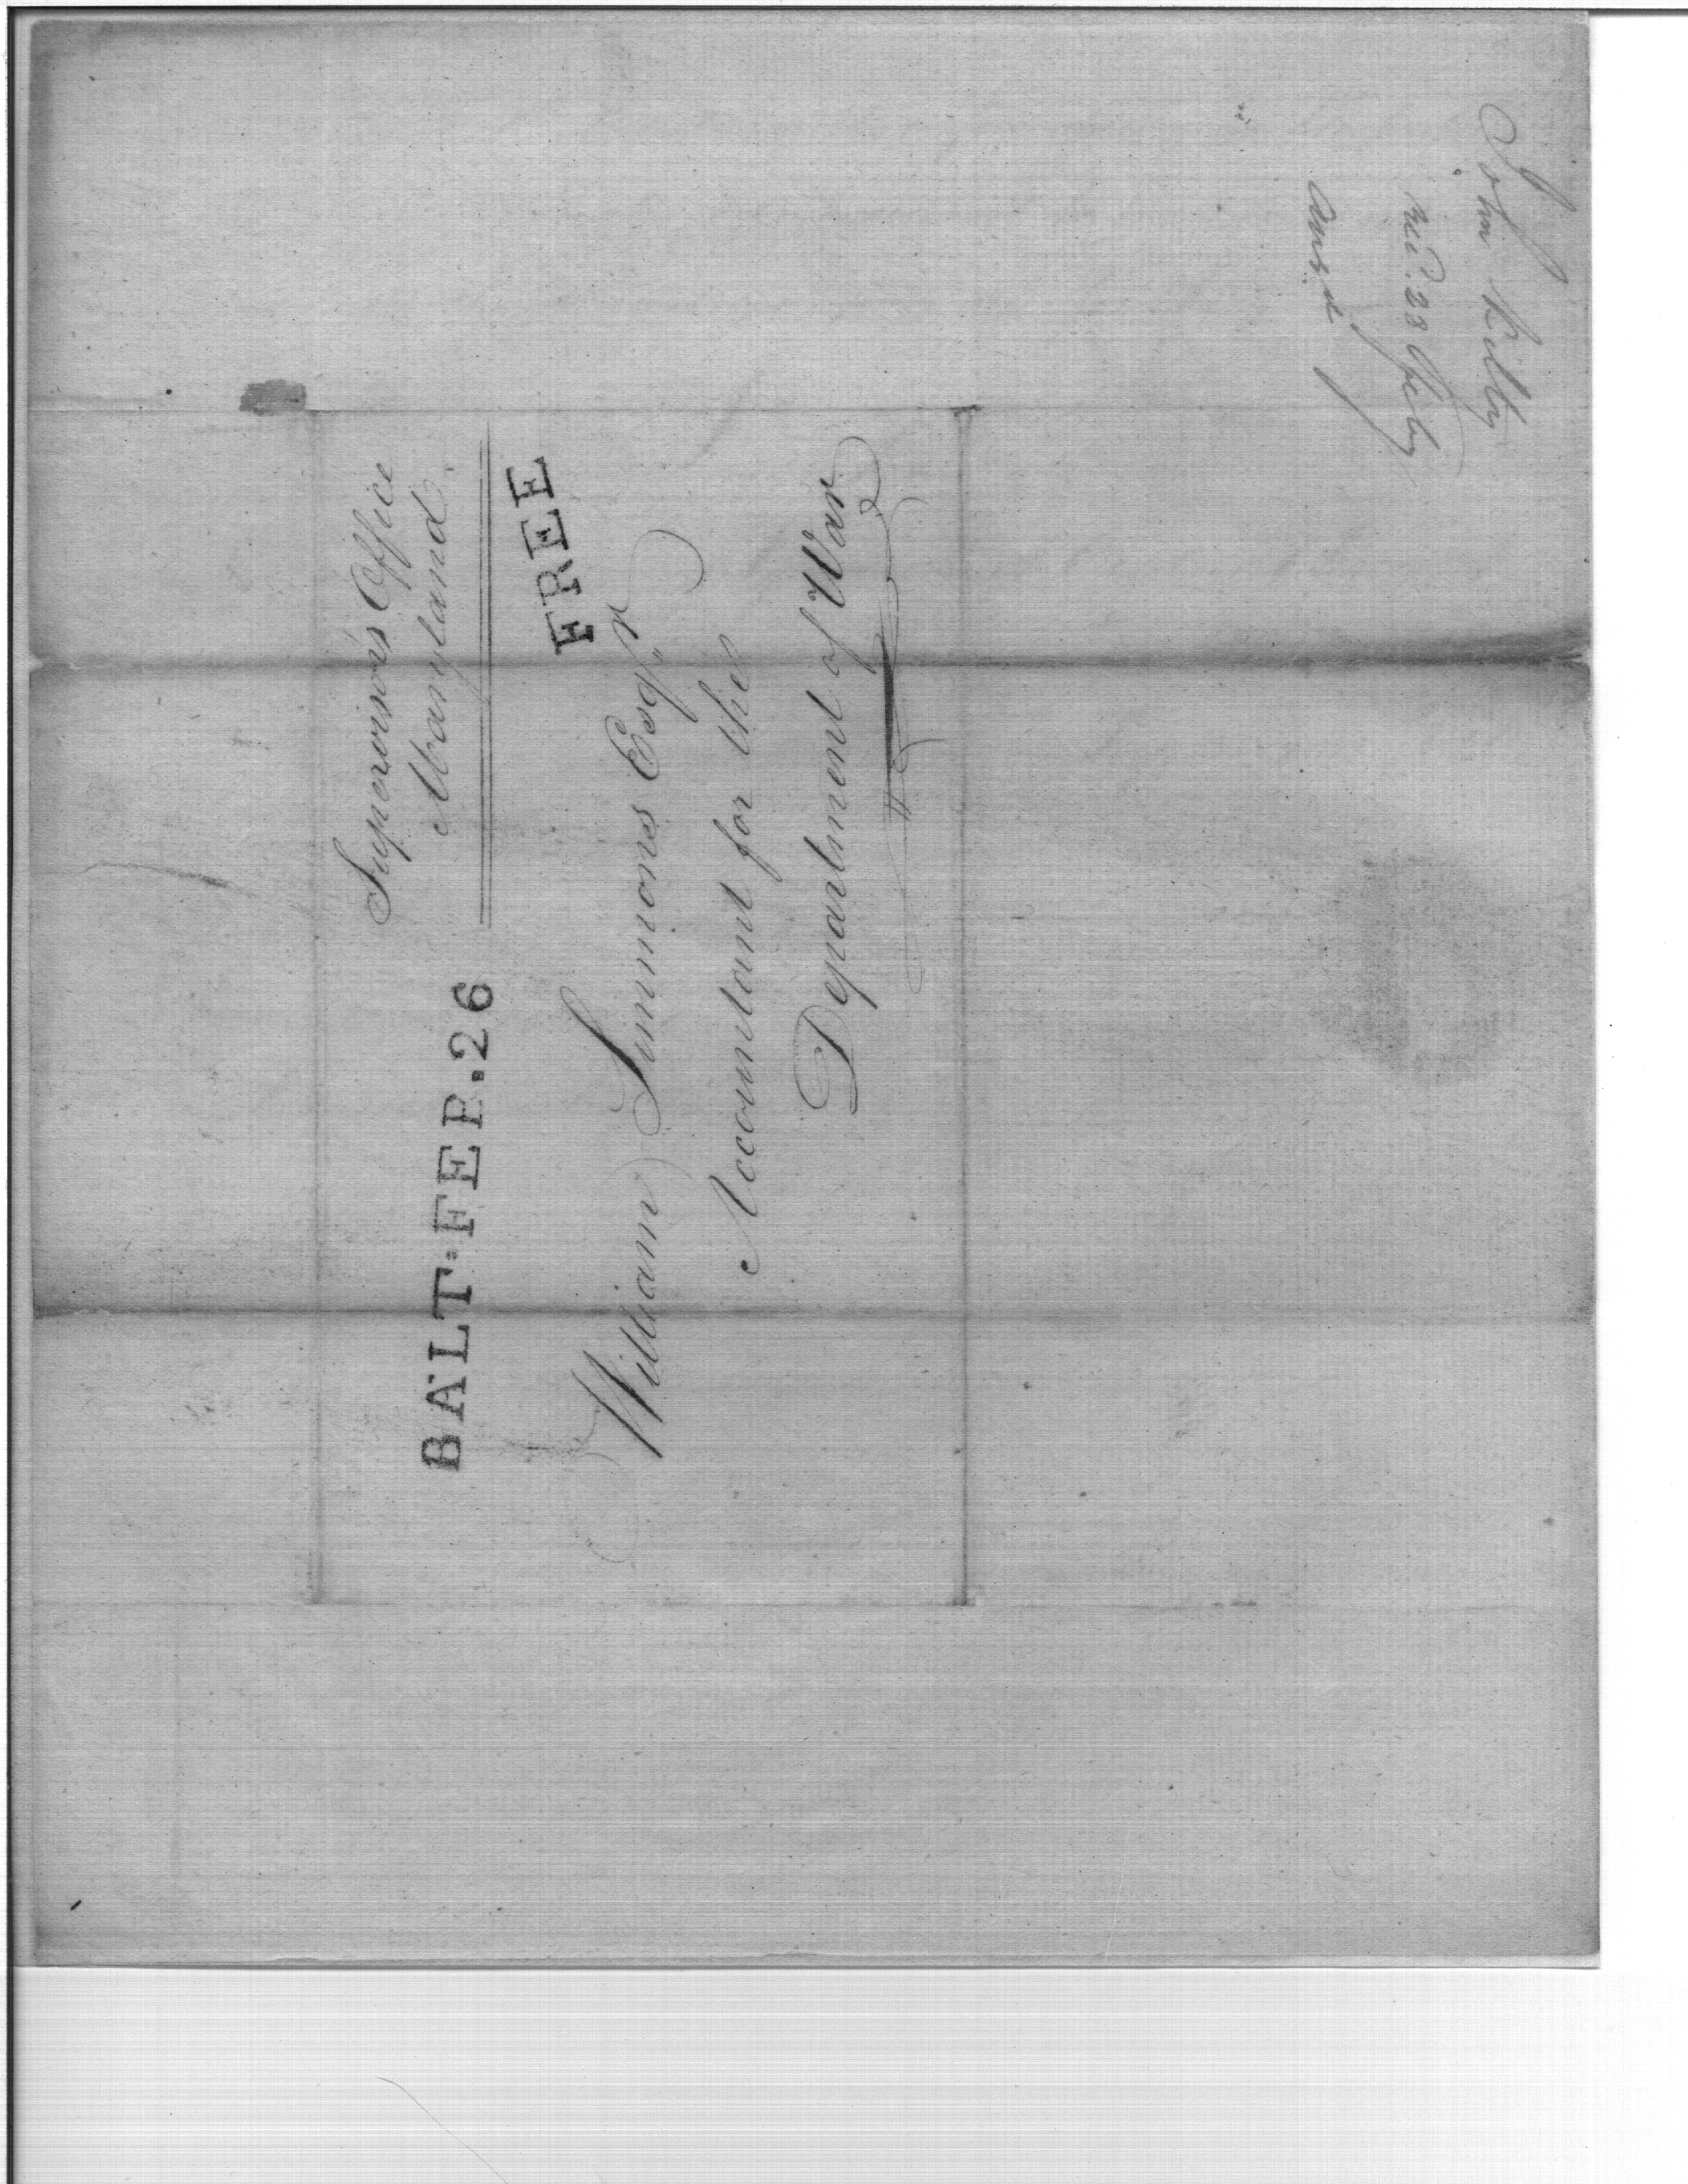 Supervisor's Office
Maryland.
BALT. FEB. 26
FREE
William Simmons Esqr
Accountant for the
Department of War
John Kilty
rec'd. 28 Feby
ansd